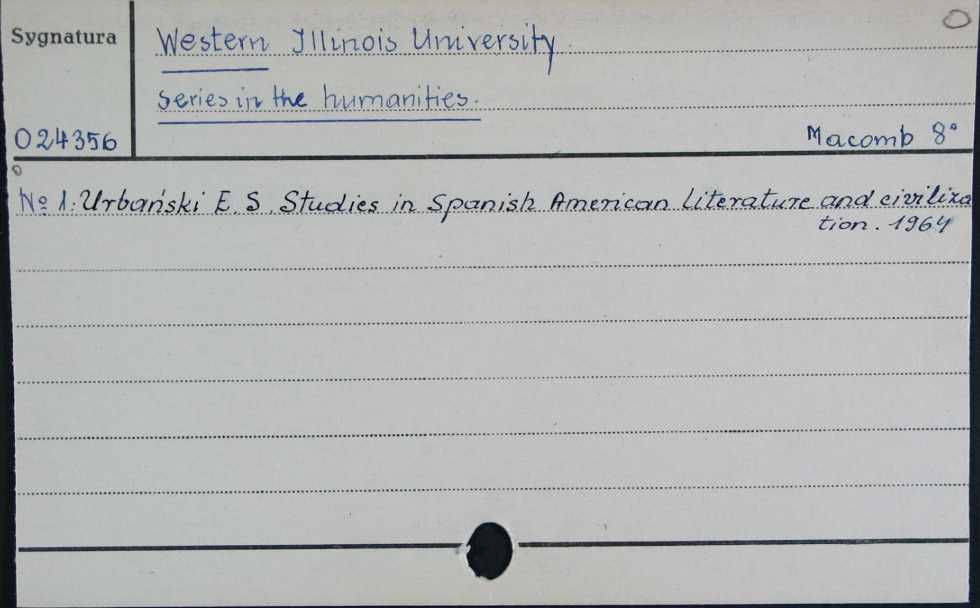 Sygnatura
Western Illinois University
series in the humanities.
024356
Macomb 8°
№ 1: Urbański E. S. Studies in Spanish American literature and civiliza
tion. 1964